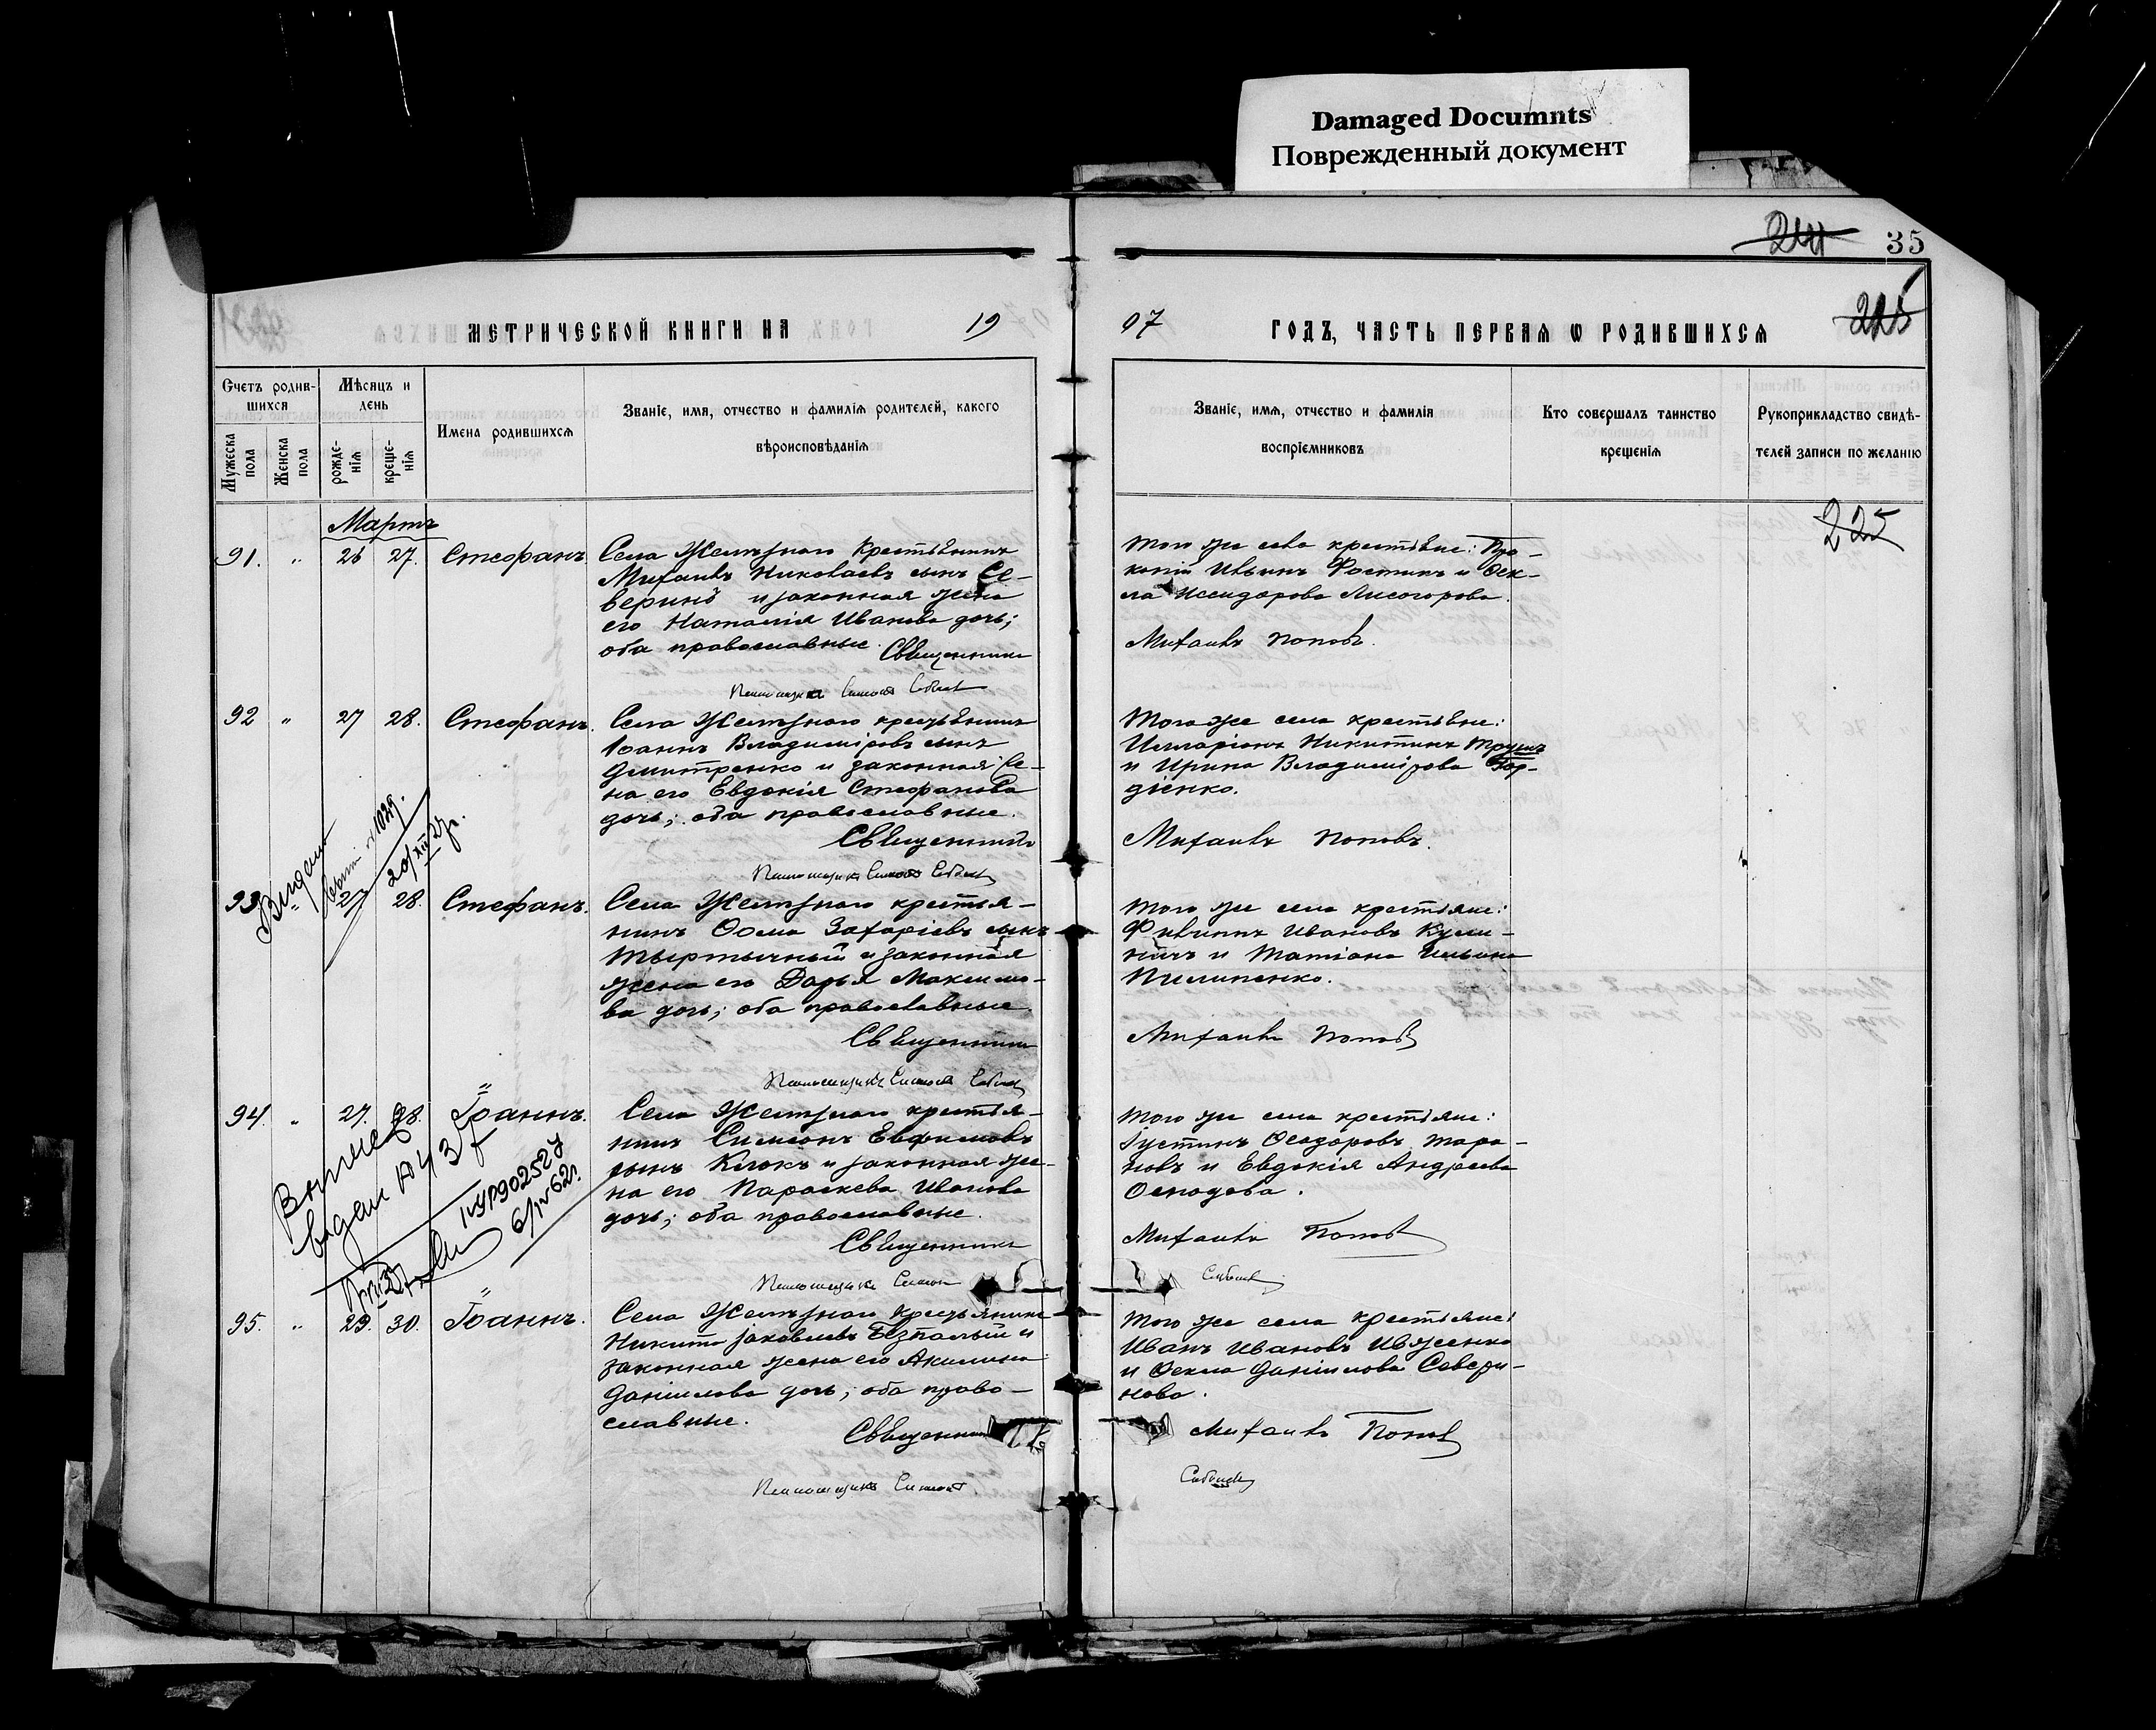 Damaged Documnts
Поврежденный документ
35
225
МЕТРИЧЕСКОЙ КНИГИ НА 19
07 ГОДЪ, ЧАСТЬ ПЕРВАЯ Ѡ РОДИВШИХСЯ
Счетъ родив-
шихся
Мужеска
пола
Женска
пола
Мѣсяцъ и
день
рожде-
нія
креще-
нія
Имена родившихся
Званіе, имя, отчество и фамилія родителей, какого
вѣроисповѣданія
Званіе, имя, отчество и фамилія
воспріемниковъ
Кто совершалъ таинство
крещенія
Рукоприкладство свидѣ-
телей записи по желанію
225
Мартъ
91. " 26 27. Стефанъ
Села Желтѣзнаго крестьянинъ
Михаилъ Николаевъ сынъ Се-
веринъ и законная жена
его Наталія Иванова дочь;
оба православные. Священникъ
Псаломщикъ Симеонъ
Того же села крестьяне: Про-
копій Ильинъ Фостикъ и Ѳек-
ла Исидорова Лисогорова.
Михаилъ Поповъ.
92 " 27 28. Стефанъ.
Села крестьянинъ
Іоаннъ Владиміровъ сынъ
Дмитренко и законная же-
на его Евдокія Стефанова
дочь; оба православные.
Священникъ
Псаломщикъ Симеонъ
Того же села крестьяне:
Илларіонъ Никитинъ
и Ирина Владимірова Гор-
діенко.
Михаилъ Поповъ.
93 " 27 28. Стефанъ.
Села крестья-
нинъ Ѳома Захаріевъ сынъ
Тыртычный и законная
жена его Дарья Максимо-
ва дочь; оба православные
Священникъ
Псаломщикъ Симеонъ
Того же села крестьяне:
Филиппъ Ивановъ
и Татіана Ильина
Пилипенко.
Михаилъ Поповъ
94. " 27. 28. Іоаннъ.
Села крестья-
нинъ Симеонъ Евфимовъ
сынъ Клокъ и законная же-
на его Параскева Иванова
дочь; оба православные.
Священникъ
Псаломщикъ Симеонъ
Того же села крестьяне:
Іустинъ Ѳеодоровъ Тара-
новъ и Евдокія Андреева
Михаилъ Поповъ
95. " 29. 30. Іоаннъ.
Села крестьянинъ
Никита Іаковлевъ Безпалый и
законная жена его Акилина
Даніилова дочь; оба право-
славные.
Священникъ
Псаломщикъ Симеонъ
Того же села крестьяне:
Иванъ Ивановъ Ивженко
и Ѳекла Даніилова Севери-
нова.
Михаилъ Поповъ